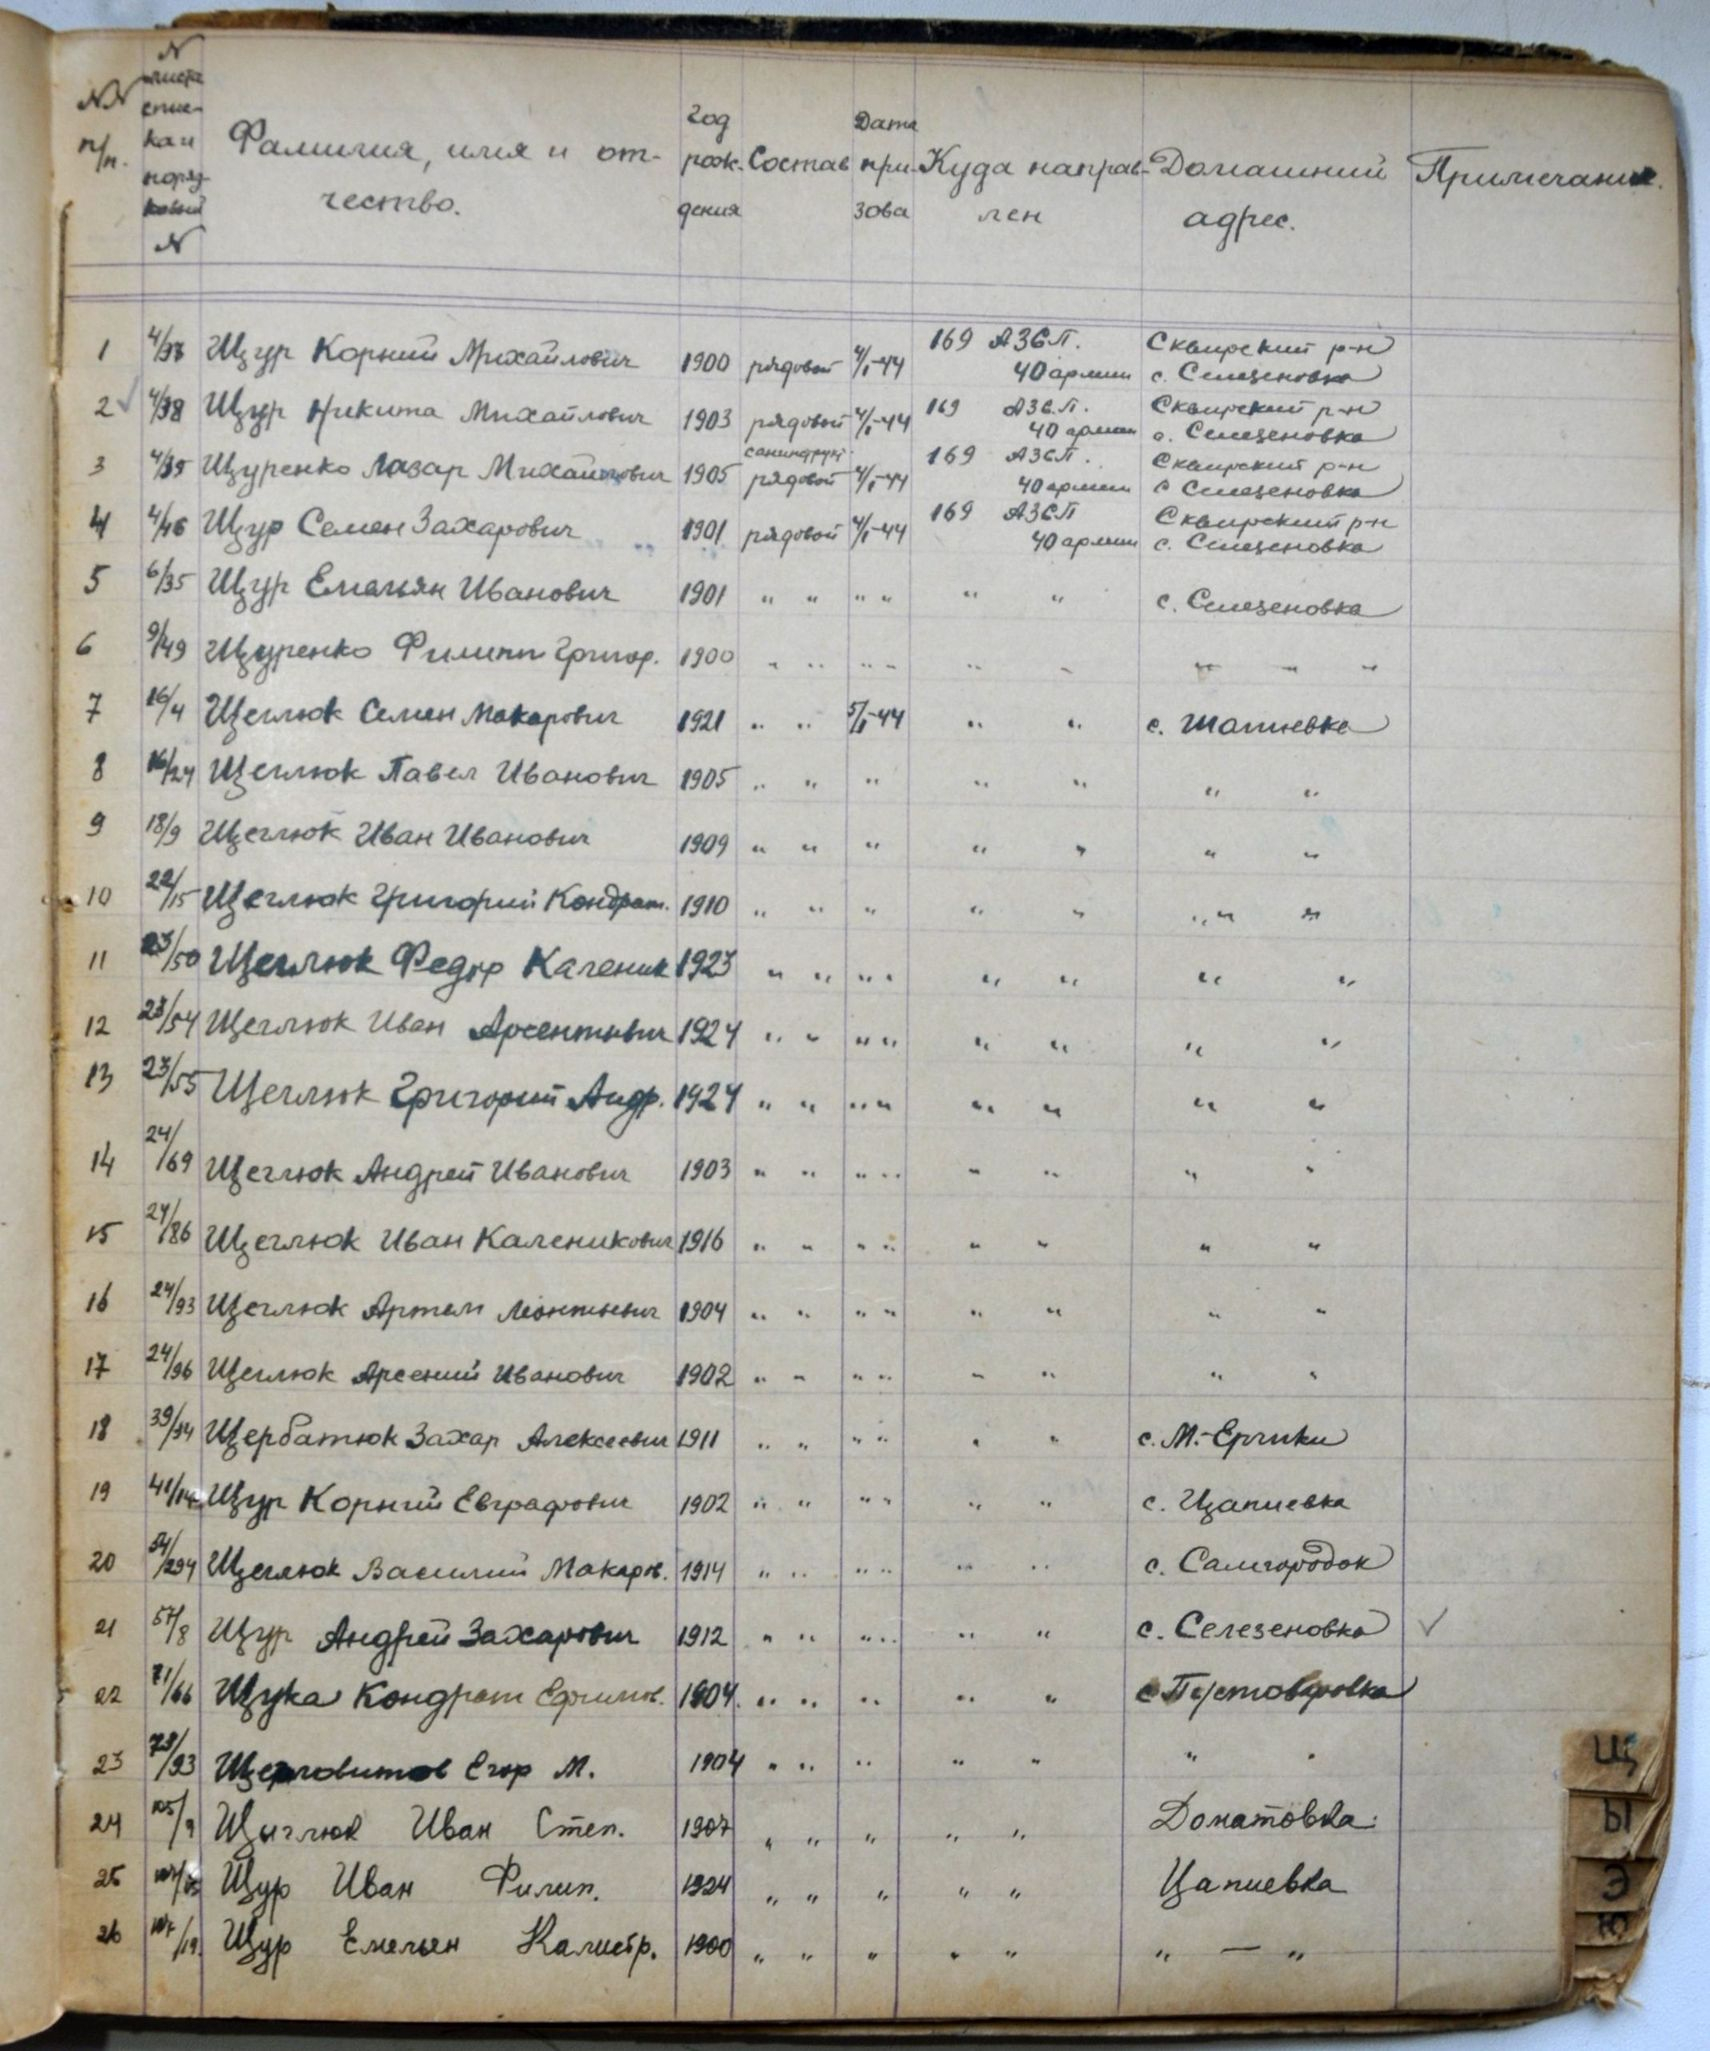 NN п/п. N листа списка и порядковый N Фамилия, имя и отчество. Год рождения Состав Дата призова Куда направлен Домашний адрес. Примечание.
1 4/37 Щур Корний Михайлович 1900 рядовой 4/I-44 169 АЗСП. 40 армии Сквирский р-н с. Селезеновка
2 ✓ 4/38 Щур Никита Михайлович 1903 рядовой 4/I-44 169 АЗС.П. 40 армии Сквирский р-н с. Селезеновка
3 4/39 Щуренко Лазар Михайлович 1905 санинструкт. рядовой 4/I-44 169 АЗСП. 40 армии Сквирский р-н с Селезеновка
4 4/46 Щур Семен Захарович 1901 рядовой 4/I-44 169 АЗСП 40 армии Сквирский р-н с. Селезеновка
5 6/35 Щур Емельян Иванович 1901 " " " " " " с. Селезеновка
6 9/49 Щуренко Филипп Григор. 1900 " " " " " " " " "
7 16/4 Щеглюк Семен Макарович 1921 " " 5/I-44 " " с. Шапиевка
8 16/24 Щеглюк Павел Иванович 1905 " " " " " " "
9 18/9 Щеглюк Иван Иванович 1909 " " " " " " "
10 22/15 Щеглюк Григорий Кондрат. 1910 " " " " " " " "
11 23/50 Щеглюк Федор Каленик 1923 " " " " " " " "
12 23/54 Щеглюк Иван Арсентиевич 1924 " " " " " " " "
13 23/55 Щеглюк Григорий Андр. 1924 " " " " " " " "
14 24/69 Щеглюк Андрей Иванович 1903 " " " " " " " "
15 24/86 Щеглюк Иван Каленикович 1916 " " " " " " " "
16 24/93 Щеглюк Артем Леонтиевич 1904 " " " " " " " "
17 24/96 Щеглюк Арсений Иванович 1902 " " " " " " " "
18 39/94 Щербатюк Захар Алексеевич 1911 " " " " " " с. М.-Ерчики
19 Щур Корний Евграфович 1902 " " " " " " с. Цапиевка
20 54/294 Щеглюк Василий Макаров. 1914 " " " " " " с. Самгородок
21 57/8 Щур Андрей Захарович 1912 " " " " " " с. Селезеновка ✓
22 71/66 Щука Кондрат Ефимов. 1904. " " " " " с Пустоваровка
23 73/93 Егор М. 1904 " " " " " " "
24 105/9 Щыглюк Иван Степ. 1907 " " " " " Домантовка.
25 Щур Иван Филип. 1924 " " " " " Цапиевка
26 107/19. Щур Емельен Калистр. 1900 " " " " " " — "
Щ
Ы
Э
Ю